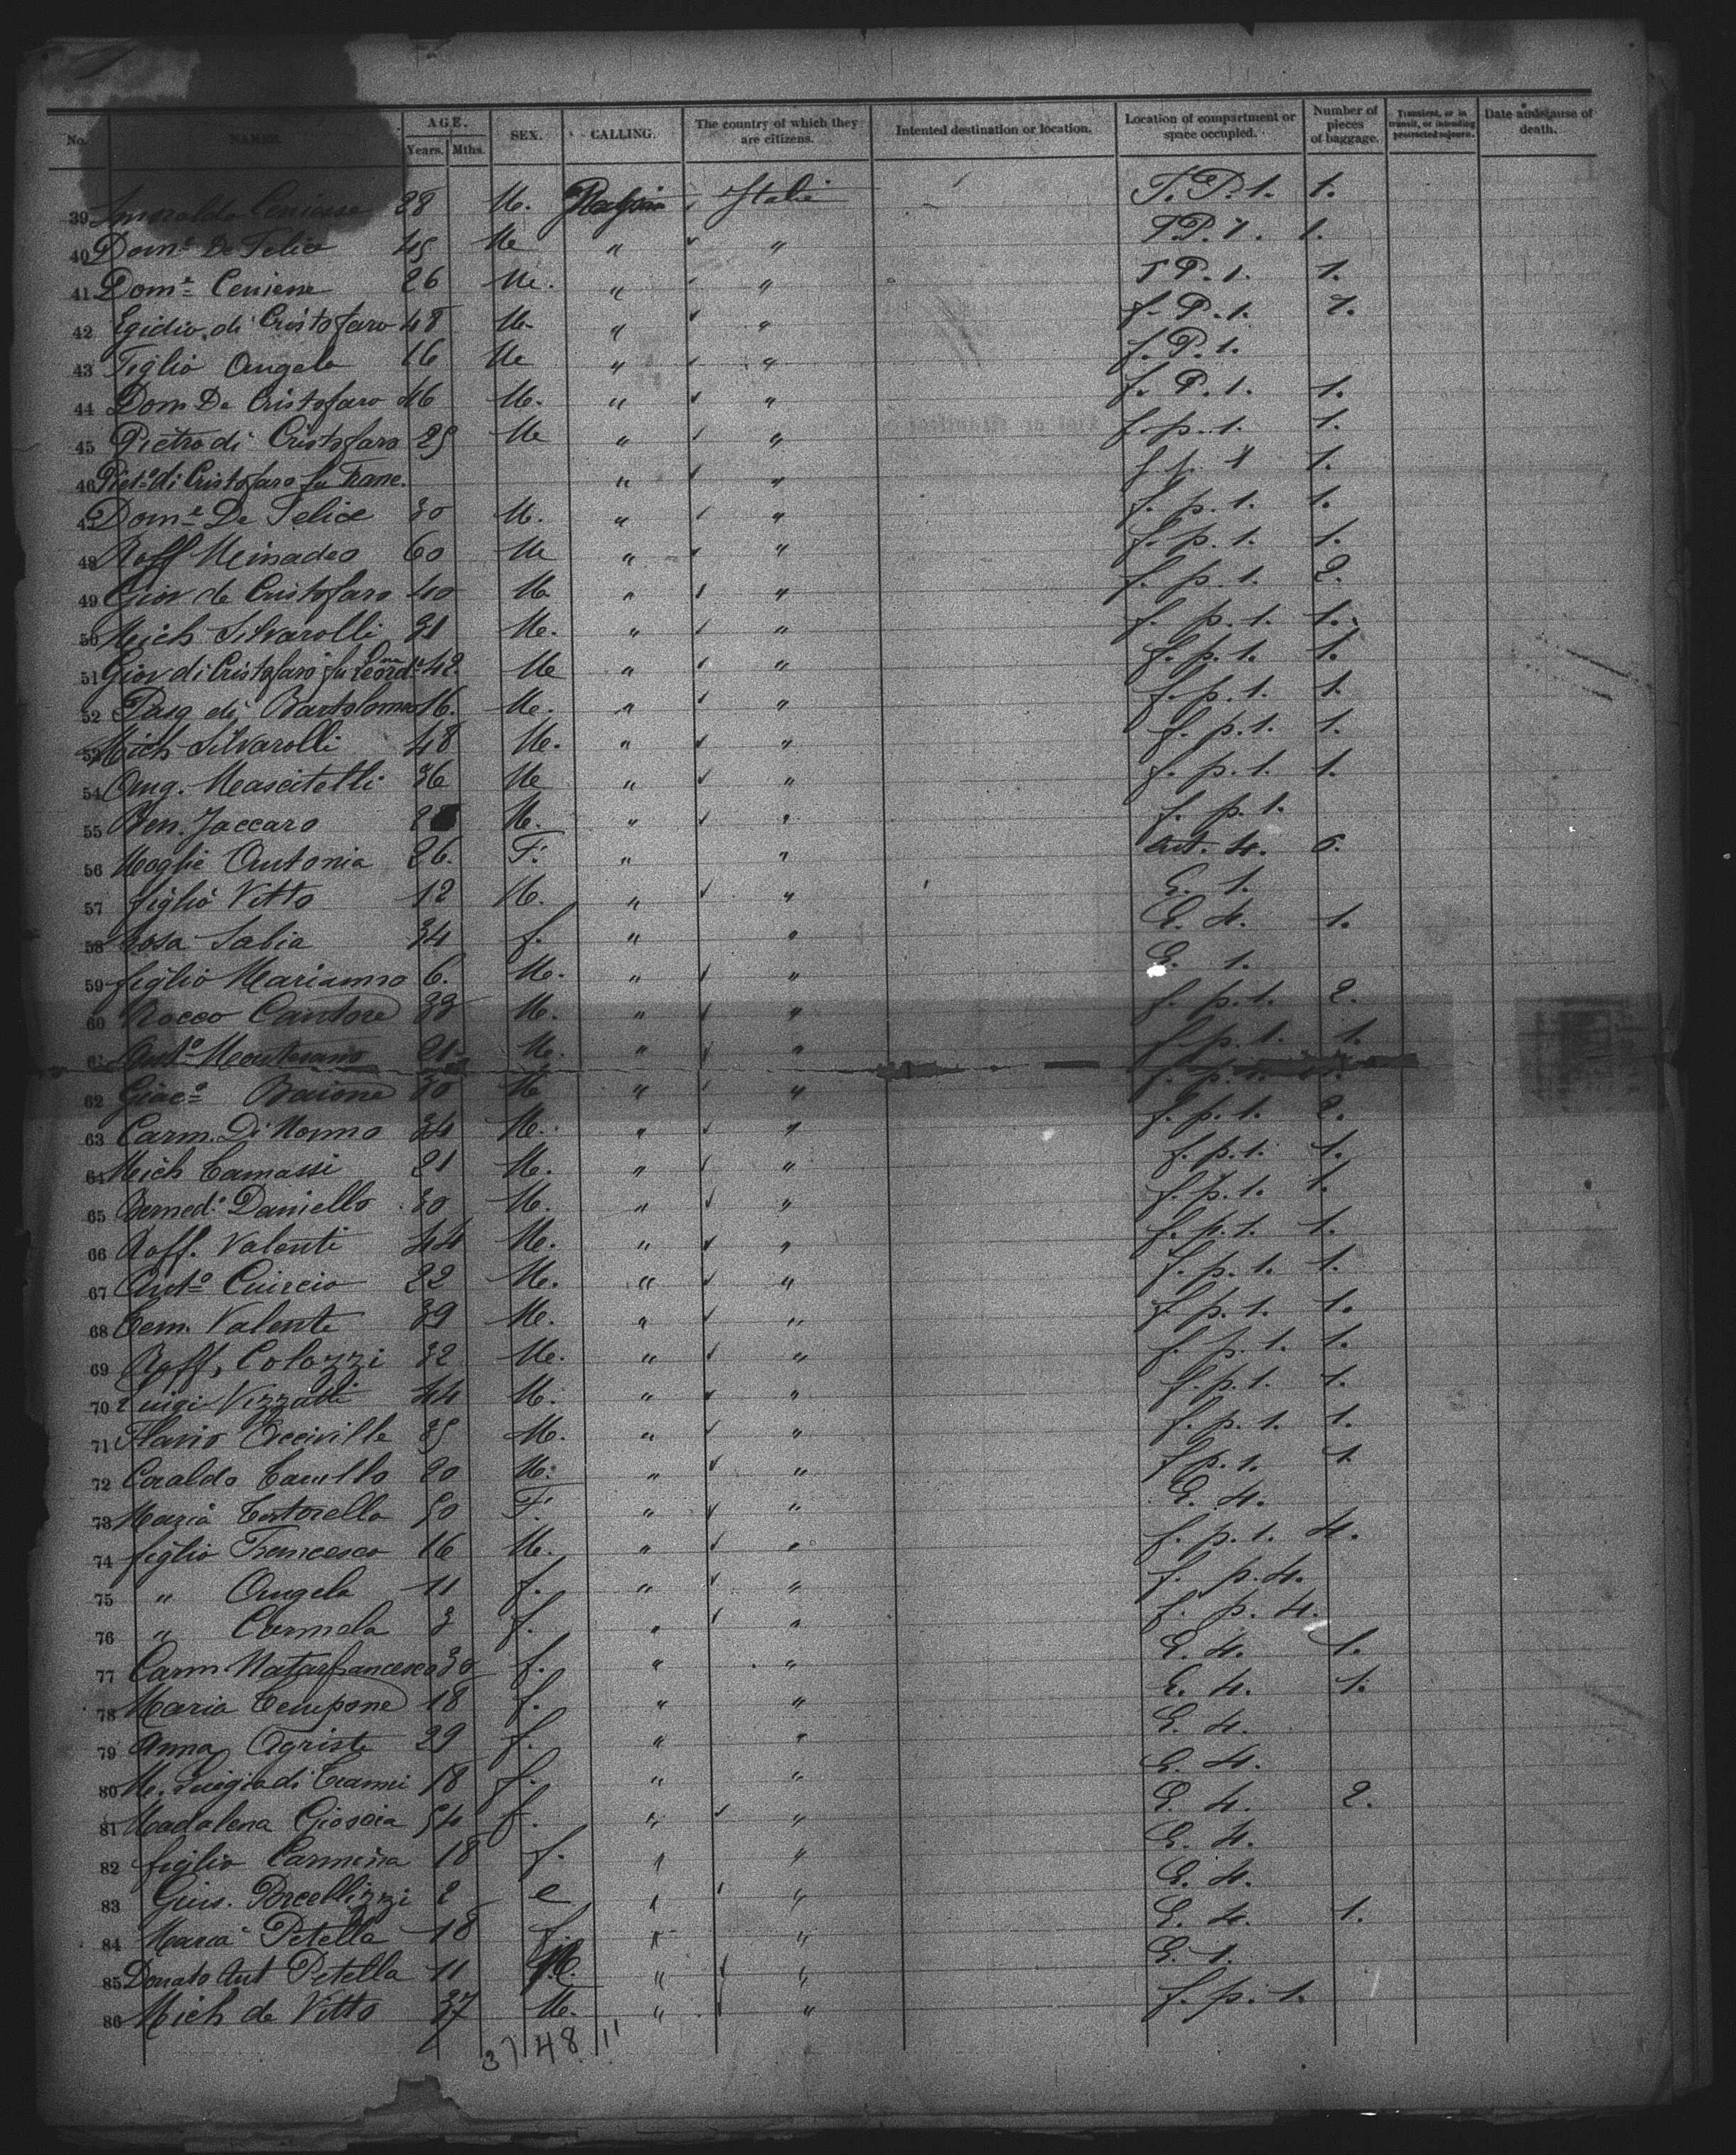 No. NAMES. AGE. Years. Mths. SEX. CALLING. The country of which they are citizens. Intented destination or location. Location of compartment or space occupied. Number of pieces of baggage. Transient, or in transit, or intending protracted sojourn. Date and cause of death.
39 28 M. Italie T. P. 1. 1.
40 Domᵉ De Felice 45 M " " T.P. 1. 1.
41 Domᵉ Ceniene 26 M. " " T P. 1. 1.
42 Egidio di Cristofaro 48 M. " " f. P. 1. 1.
43 Figlio Angelo 16 M " " f. P. 1.
44 Dom De Cristofaro 46 M. " " f. P. 1. 1.
45 Pietro di Cristofaro 25 M " " f. p. 1. 1.
46 Pietº di Cristofaro fu Franc. " " f. p. 1 1.
47 Domᵉ De Felice 30 M. " " f. p. 1. 1.
48 Raff Meinadeo 60 M " " f. p. 1. 1.
49 Giov de Cristofaro 40 M " " f. p. 1. 2.
50 Mich Silvarolli 31 M. " " f. p. 1. 1.
51 Giov di Cristofaro fu Leonardº 42 M " " f. p. 1. 1.
52 Pasq di Bartolomeo 16. M. " " f. p. 1. 1.
53 Mich Silvarolli 48 M. " " f. p. 1. 1.
54 Ang. Mascitelli 36 M " " f. p. 1. 1.
55 Ben. Jaccaro M. " " f. p. 1.
56 Moglie Antonia 26. F. " " 4. 6.
57 figlio Vitto 12 M. " " E. 1.
58 Rosa Sabia 34 f. " " E. 4. 1.
59 figlio Marianno 6. M. " " E. 1.
60 Rocco Cantore 33 M. " " f. p. 1. 2.
61 Antº Montesano 21 M. " " f. p. 1. 1.
62 Giacº Baione 30 M " " f. p. 1.
63 Carm. Di Nonno 34 M. " " f. p. 1. 2.
64 Mich Camassi 21 M. " " f. p. 1. 1.
65 Berned. Daniello 30 M. " " f. p. 1. 1.
66 Raff. Valenti 44 M. " " f. p. 1. 1.
67 Antº Cuircio 22 M. " " f. p. 1. 1.
68 Gem. Valente 39 M. " " f. p. 1. 1.
69 Raff. Colozzi 32 M. " " f. p. 1. 1.
70 Luigi Vizzatti 44 M. " " f. p. 1. 1.
71 Flavio 35 M. " " f. p. 1. 1.
72 Coraldo 20 M. " " f. p. 1. 1
73 Maria Tortorella 50 F. " " E. 4.
74 figlio Francesco 16 M. " " f. p. 1. 4.
75 " Angela 11 f. " " f. p. 4.
76 " Carmela 3 f. " " f. p. 4.
77 Carm. Natarfrancesco 30 f. " " E. 4. 1.
78 Maria Tempone 18 f. " " E. 4. 1.
79 Anna Agriste 29 f. " " E. 4.
80 M. Luigia di Tranni 18 f. " " E. 4.
81 Madalena Gioscia 54 f. " " E. 4. 2.
82 figlio Carmina 18 f. " " E. 4.
83 Gius. Porcellizzi 2 e " " E. 4.
84 Maria Petella 18 f. " " E. 4. 1.
85 Donato Ant Petella 11 M. " " E. 1.
86 Mich de Vitto 37 M. " " f. p. 1.
37 48 11